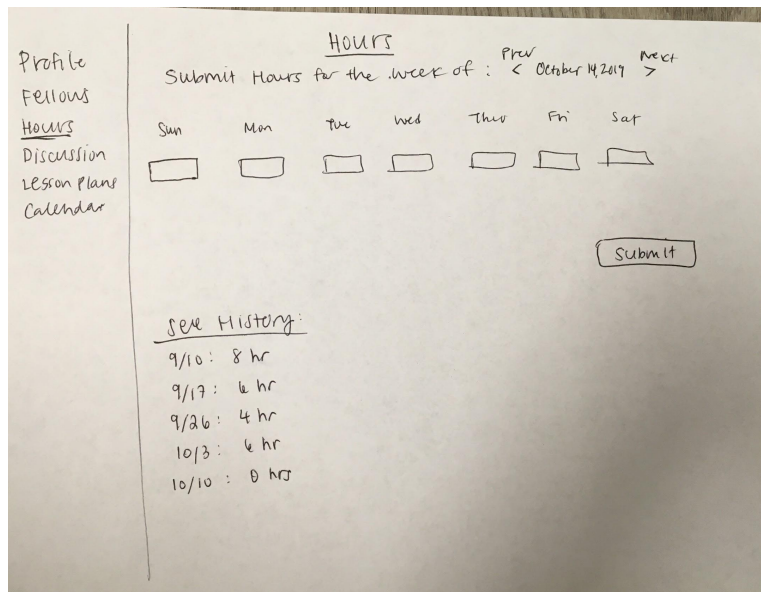 Profile
Fellows
Hours
Discussion
Lesson Plans
Calendar
Hours
Submit Hours for the week of : < October 14, 2019 >
Prev
Next
Sun Mon Tue Wed Thur Fri Sat
Submit
See History:
9/10: 8 hr
9/17: 6 hr
9/26: 4 hr
10/3: 6 hr
10/10 : 0 hrs